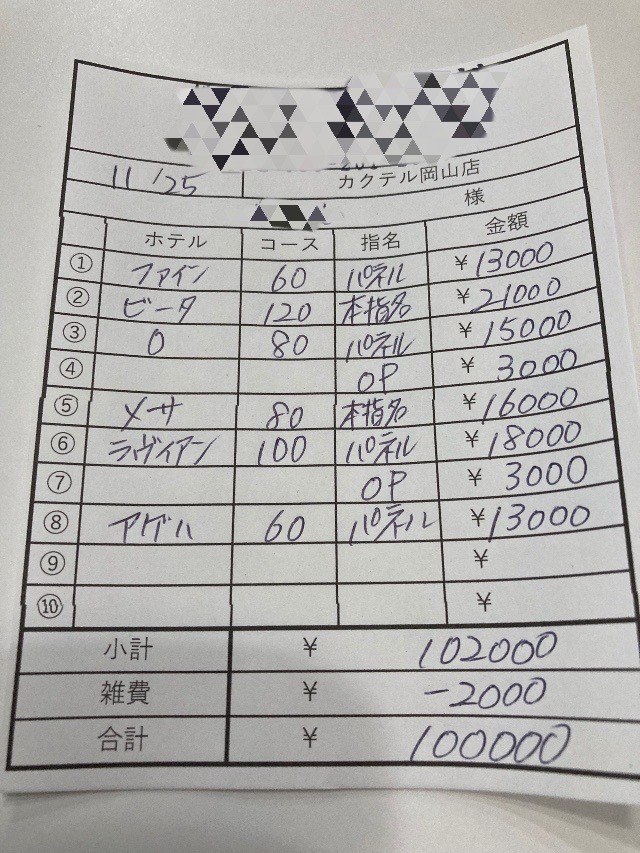 11/25 カクテル岡山店
様
ホテル コース 指名 金額
① ファイン 60 パネル ¥13000
② ビータ 120 本指名 ¥21000
③ O 80 パネル ¥15000
④ OP ¥3000
⑤ メーサ 80 本指名 ¥16000
⑥ ラヴィアン 100 パネル ¥18000
⑦ OP ¥3000
⑧ アゲハ 60 パネル ¥13000
⑨ ¥
⑩ ¥
小計 ¥ 102000
雑費 ¥ -2000
合計 ¥ 100000